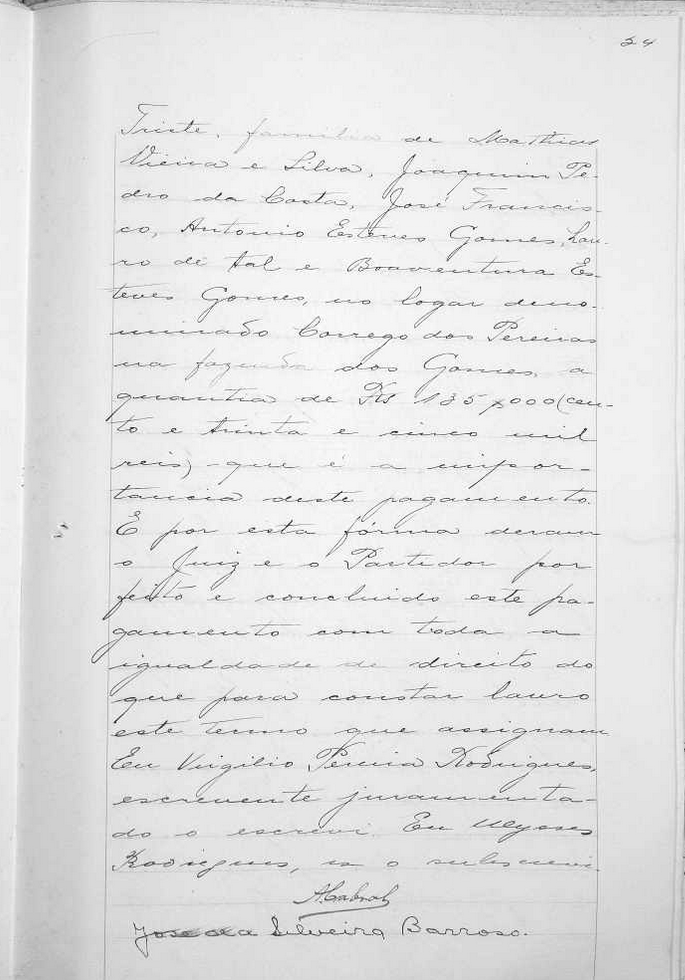 34
Triste, familia de Mathias
Vieira e Silva, Joaquim Pe-
dro da Costa, José Francis-
co, Antonio Esteves Gomes, Lau-
ro de tal e Boaventura Es-
teves Gomes, no logar deno-
minado Corrego dos Pereiras
na fazenda dos Gomes, a
quantia de Rs 135$000 (cen-
to e trinta e cinco mil
reis) - que é a impor-
tancia deste pagamento.
E por esta fórma deram
o Juiz e o Partidor por
feito e concluido este pa-
gamento com toda a
igualdade de direito do
que para constar lavro
este termo que assignam
Eu Virgilio Pereira Rodrigues,
escrevente juramenta-
do o escrevi. Eu Ulysses
Rodrigues, o subscrevi.
ACabral
José da Silveira Barroso.